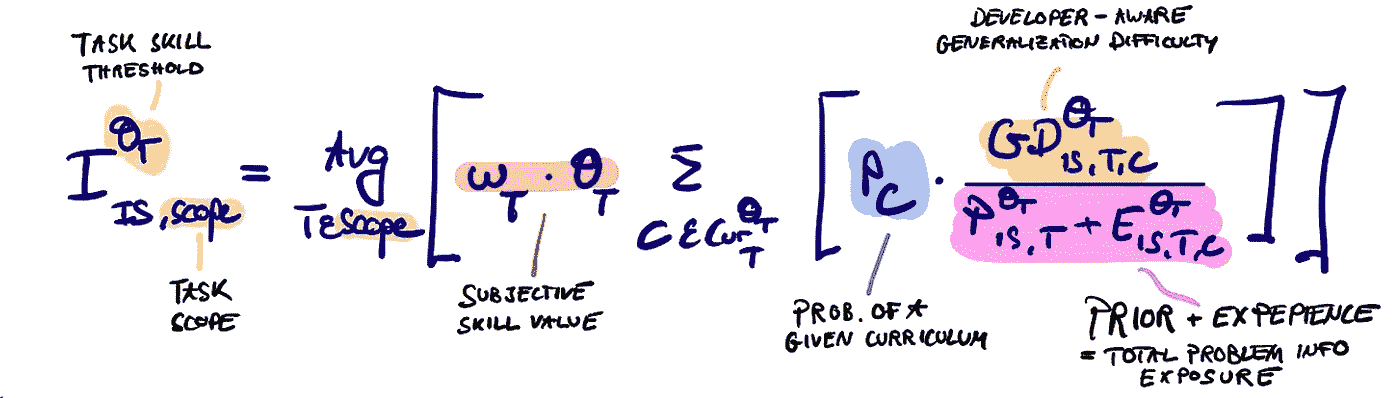 TASK SKILL
THRESHOLD
DEVELOPER-AWARE
GENERALIZATION DIFFICULTY
I^{θ_T}_{IS,SCOPE} = Avg_{T∈SCOPE} [ ω_T · θ_T Σ_{C∈Cur_T^{θ_T}} [ P_C · GD^{θ_T}_{IS,T,C} / (P^{θ_T}_{IS,T} + E^{θ_T}_{IS,T,C}) ] ]
TASK
SCOPE
SUBJECTIVE
SKILL VALUE
PROB. OF A
GIVEN CURRICULUM
PRIOR + EXPEPIENCE
= TOTAL PROBLEM INFO
EXPOSURE